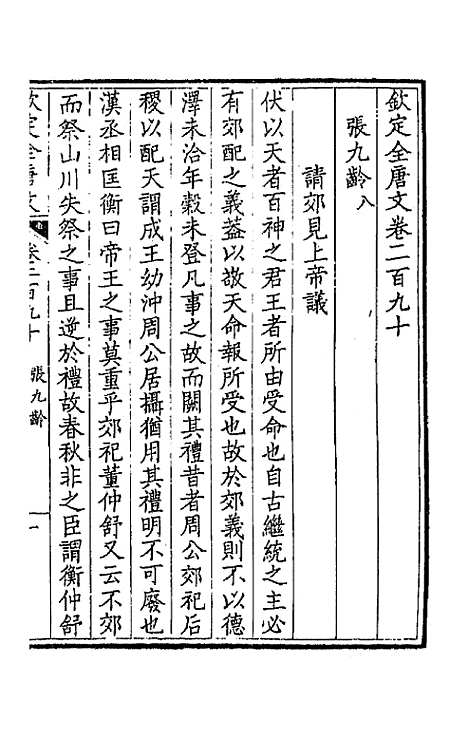 欽定全唐文卷二百九十
張九齡八
請郊見上帝議
伏以天者百神之君王者所由受命也自古繼統之主必
有郊配之義蓋以敬天命報所受也故於郊義則不以德
澤未洽年穀未登凡事之故而闕其禮昔者周公郊祀后
稷以配天謂成王幼沖周公居攝猶用其禮明不可廢也
漢丞相匡衡曰帝王之事莫重乎郊祀董仲舒又云不郊
而祭山川失祭之事且逆於禮故春秋非之臣謂衡仲舒
欽定全唐文 卷二百九十 張九齡 一